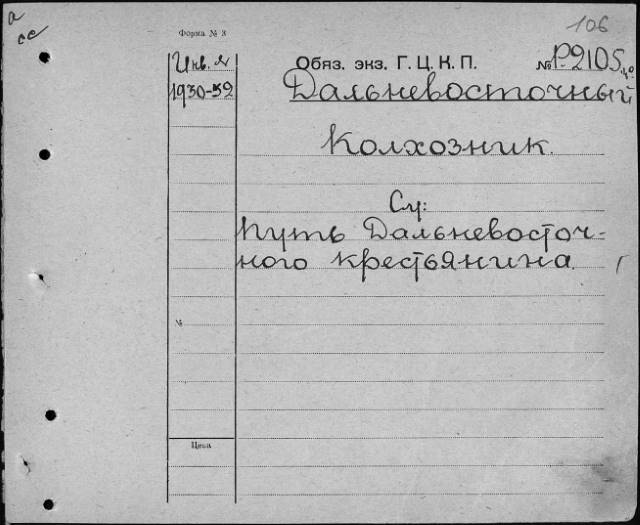 а
сс
106
Форма № 3
Инв. №
1930-52
Обяз. экз. Г. Ц. К. П.
№ Р-2105
Дальневосточный
Колхозник.
См:
Путь Дальневосточ-
ного крестьянина.
№
Цена